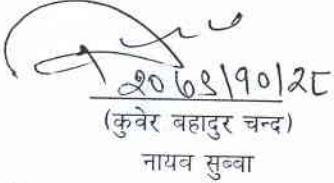 २०७९।१०।२८
(कुवेर बहादुर चन्द)
नायव सुब्बा